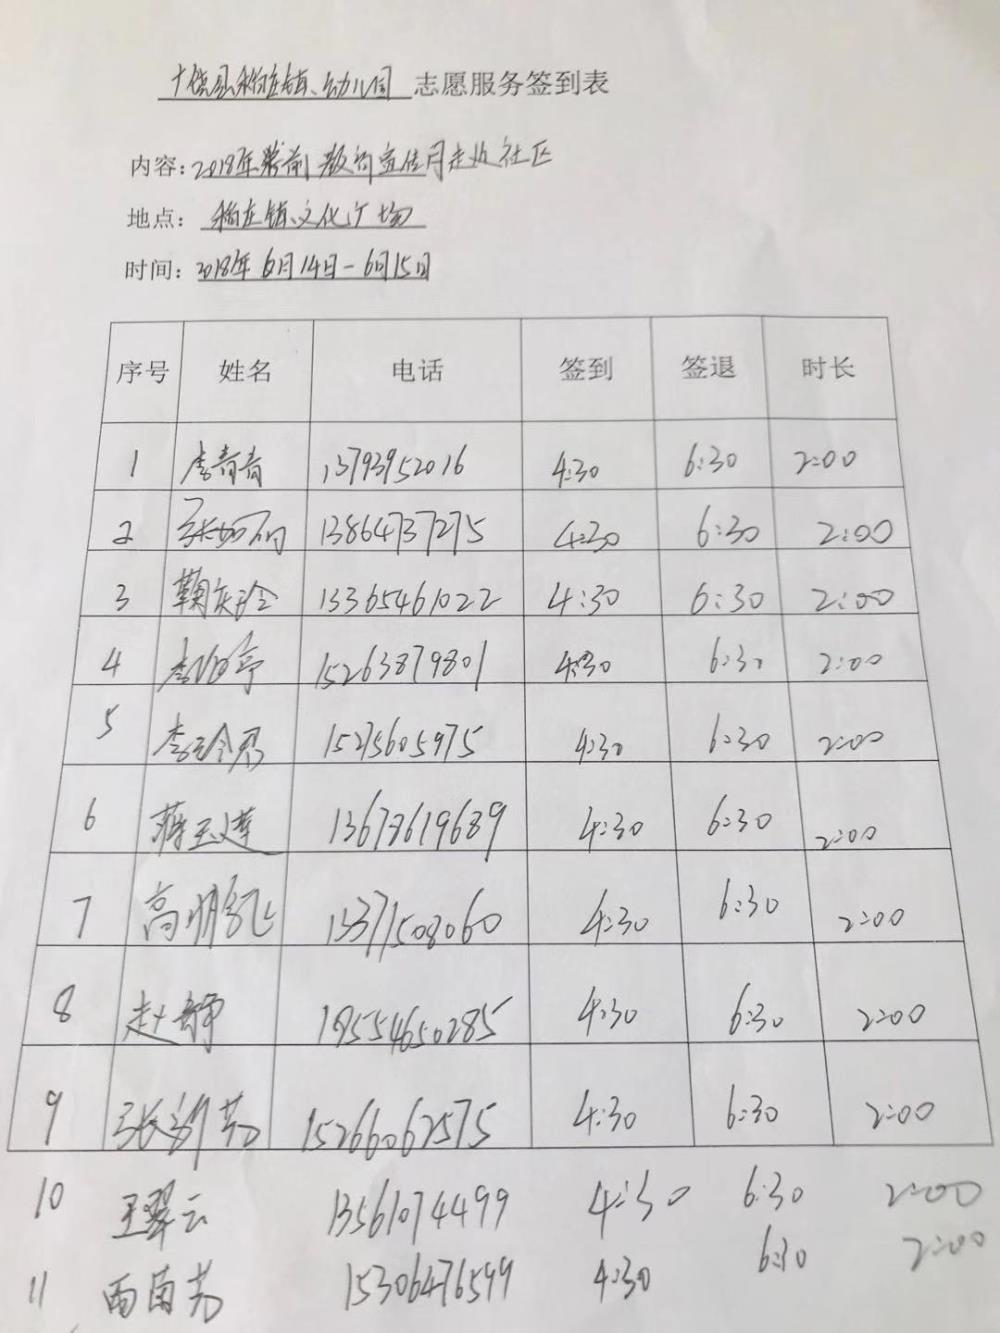 广饶县稻庄镇幼儿园 志愿服务签到表
内容：2018年学前教育宣传月走进社区
地点：稻庄镇文化广场
时间：2018年6月14日-6月15日
序号 姓名 电话 签到 签退 时长
1 李青青 13793952016 4:30 6:30 2:00
2 13864737275 4:30 6:30 2:00
3 13365461022 4:30 6:30 2:00
4 15263879801 4:30 6:30 2:00
5 李玲秀 15275605975 4:30 6:30 2:00
6 蒋玉莲 13678619689 4:30 6:30 2:00
7 高明飞 13371508060 4:30 6:30 2:00
8 赵静 18554650285 4:30 6:30 2:00
9 15266062575 4:30 6:30 2:00
10 王翠云 13561074499 4:30 6:30 2:00
11 15306476599 4:30 6:30 2:00